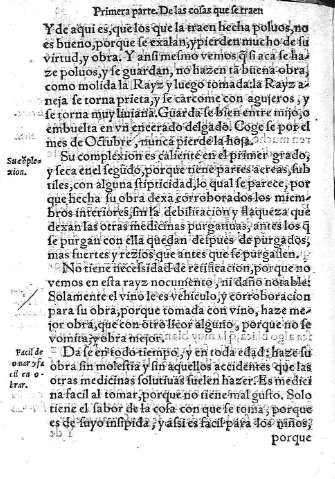 Primera parte. De las cosas que se traen
Y de aqui es, que los que la traen hecha poluos, no
es bueno, porque se exalan, y pierden mucho de su
virtud, y obra. Y ansi mesmo vemos q̃ si aca se ha
ze poluos, y se guardan, no hazen tã buena obra,
como molida la Rayz y luego tomada: la Rayz a-
ñeja se torna prieta, y se carcome con agujeros, y
se torna muy liuiana. Guardase bien entre mijo, o
embuelta en vn encerado delgado. Cogese por el
mes de Octubre, nunca pierde la hoja.
Su cõple-
xion.
Su complexion es caliente en el primer grado,
y seca en el segũdo, porque tiene partes aereas, sub
tiles, con alguna stipticidad, lo qual se parece, por
que hecha su obra dexa corroborados los miem-
bros interiores, sin la debilitacion y flaqueza que
dexan las otras medicinas purgatiuas, antes los q̃
se purgan con ella quedan despues de purgados,
mas fuertes y rezios que antes que se purgassen.
No tiene necessidad de retificacion, porque no
vemos en esta rayz nocumento, ni daño notable:
Solamente el vino le es vehiculo, y corroboracion
para su obra, porque tomada con vino, haze me-
jor obra, que con otro licor alguno, porque no se
vomita, y obra mejor.
Facil de
tomar y fa
cil en o-
brar.
Da se en todo tiempo, y en toda edad: haze su
obra sin molestia y sin aquellos accidentes que las
otras medicinas solutiuas suelen hazer. Es medici
na facil al tomar, porque no tiene mal gusto. Solo
tiene el sabor de la cosa con que se toma, porque
es de suyo insipida, y assi es facil para los niños,
porque